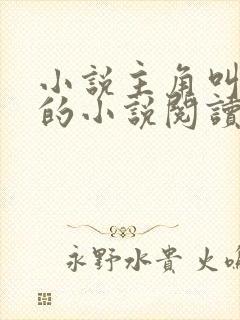 小說主角叫
的小說閱讀
永野水貴 火